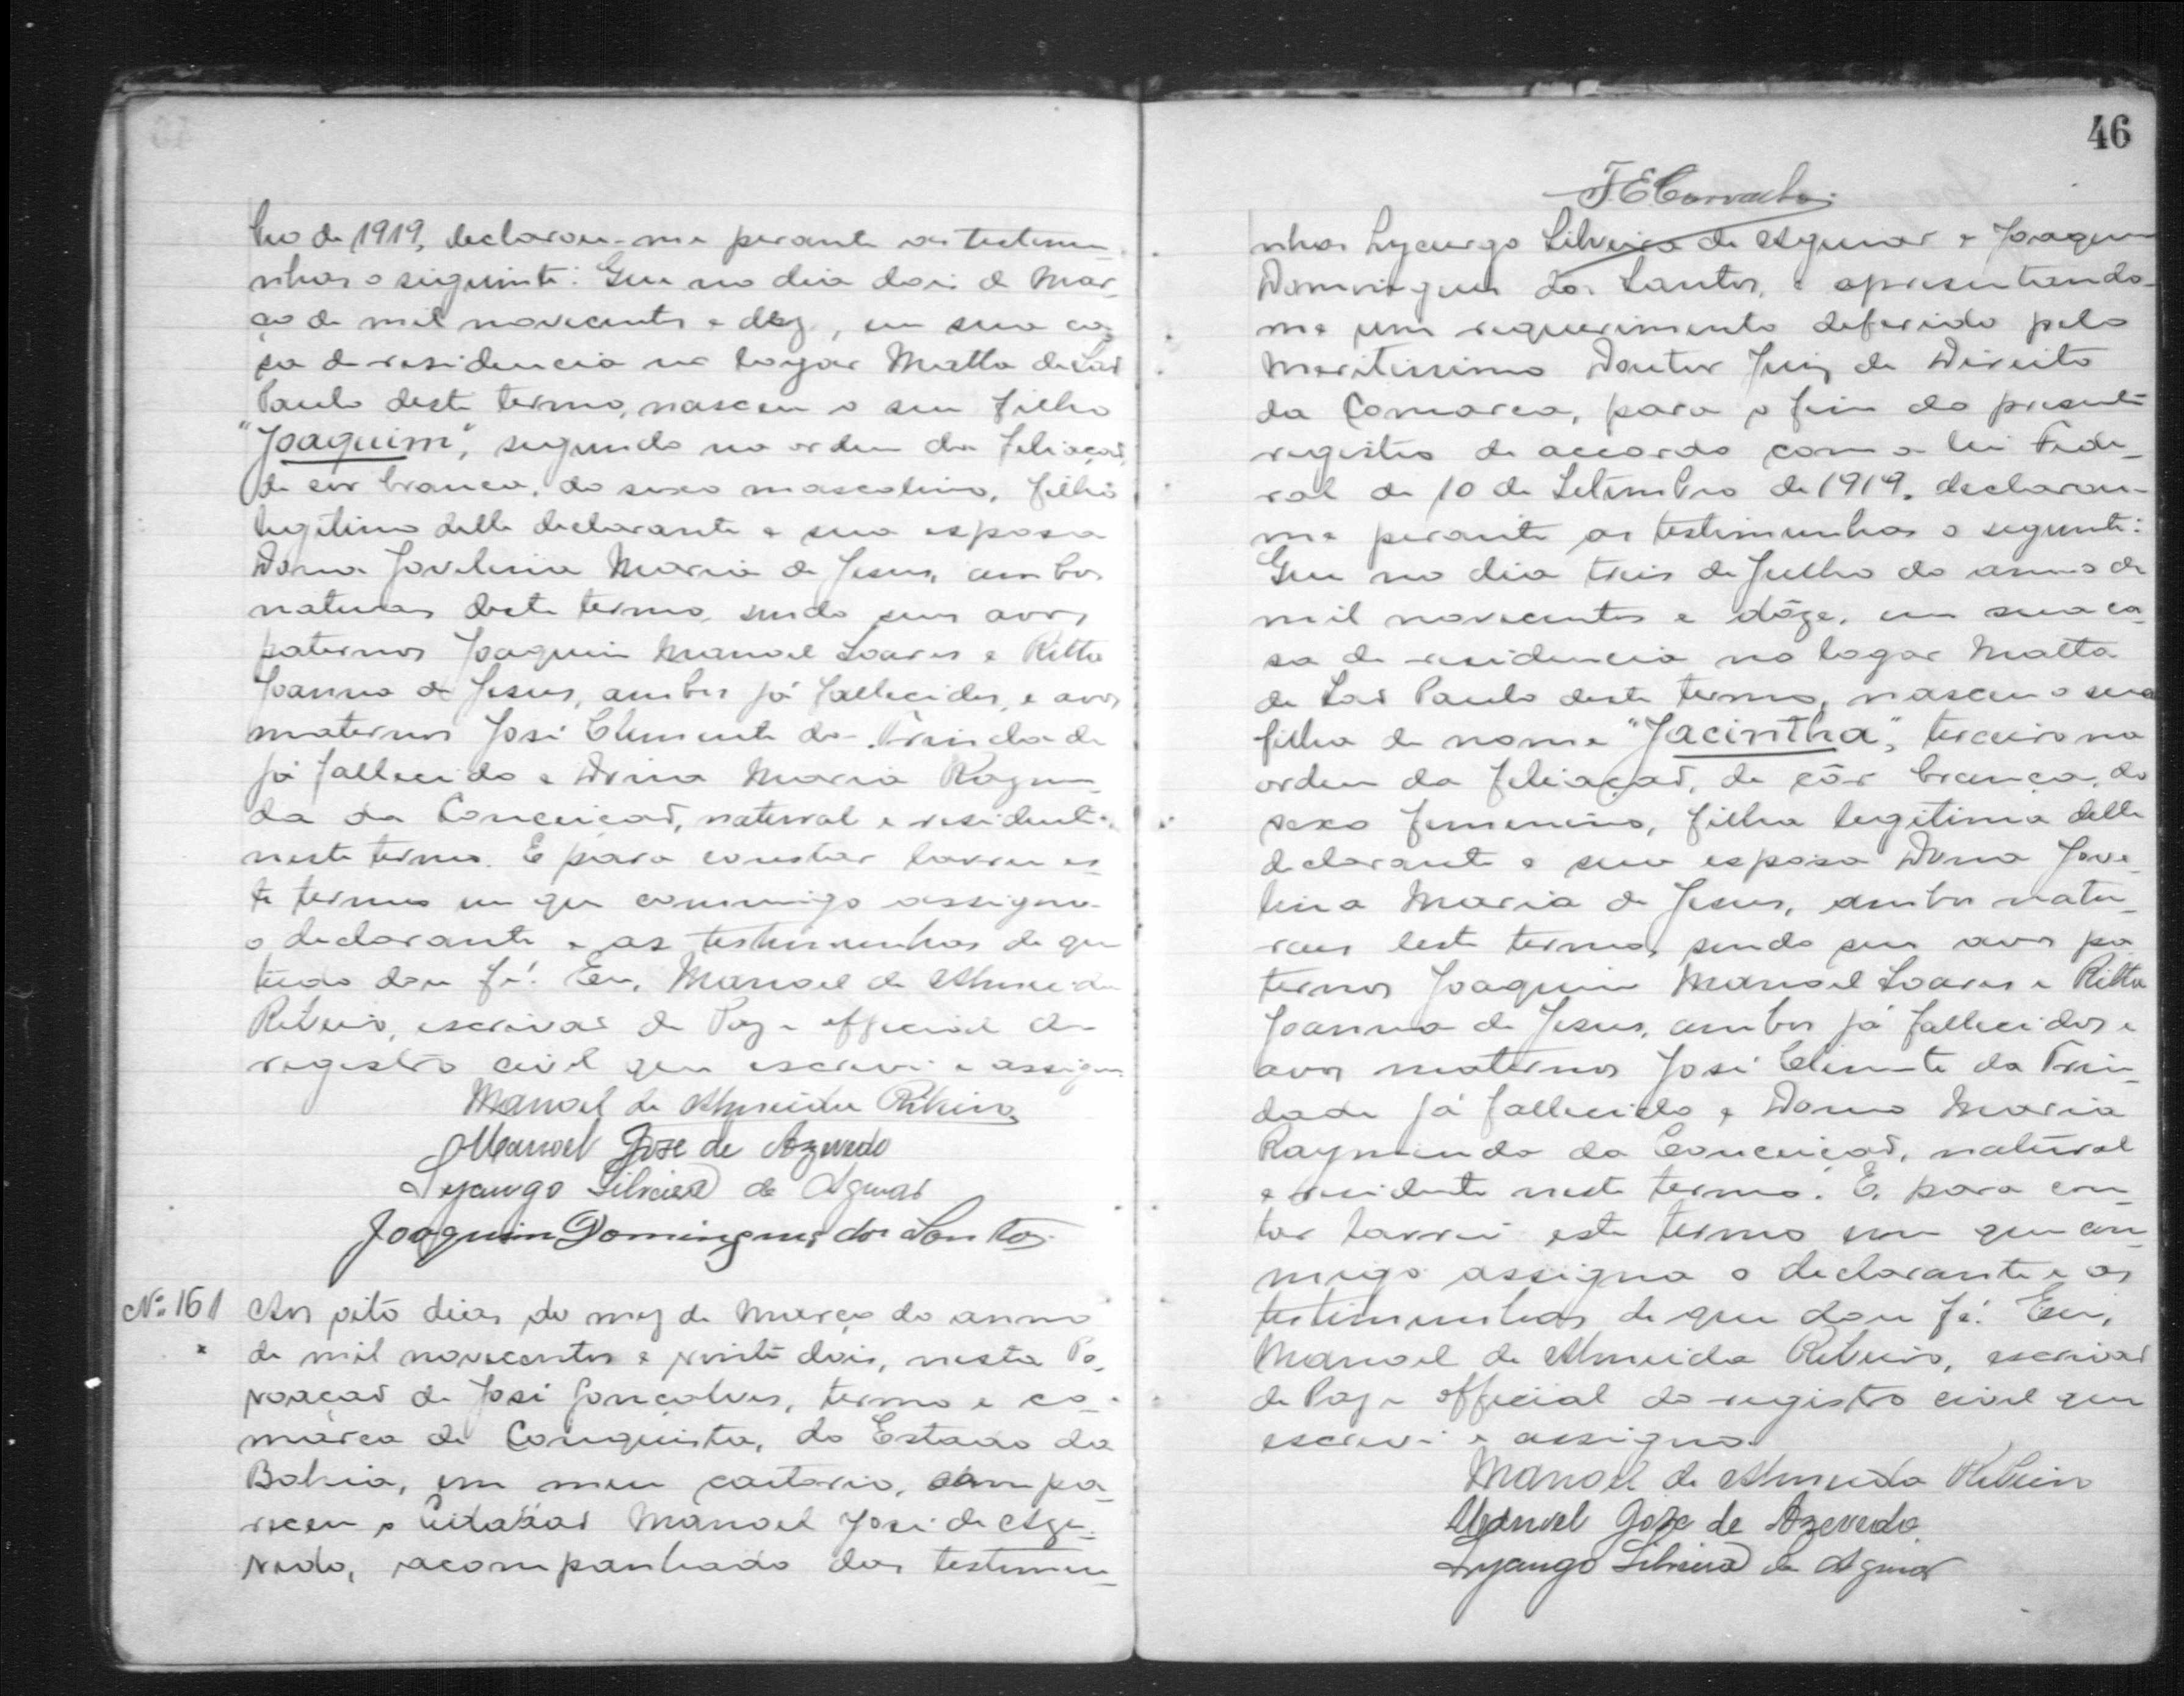 bro de 1919, declarou-me perante as testemu-
nhas o siguinte: Que no dia dois de Mar-
ço de mil novecentos e dez, em sua ca-
sa de residencia no logar Matta de São
Paulo deste termo, nasceu o seu filho
"Joaquim", segundo na ordem da filiação,
de cor branca, do sexo mascolino, filho
legitimo delle declarante e sua esposa
Dona Jovelina Maria de Jesus, ambos
naturaes deste termo, sendo seus avos
paternos Joaquim Manoel Soares e Ritta
Joanna de Jesus, ambos já fallecidos, e avos
maternos José Clemente da Trindade
já fallecido e Dona Maria Raymun-
da da Conceição, natural e residente
neste termo. E para constar lavrei es-
te termo em que commigo assigna
o declarante e as testimunhas de que
tudo dou fé. Eu, Manoel de Almeida
Ribeiro, escrivão de Paz e official do
registro civil que escrevi e assigno
Manoel de Almeida Ribeiro
Manoel Joze de Azevedo
Lycurgo Silveira de Aguiar
Joaquim Domingues dos Santos
Nº 161 Aos oito dias do mez de Março do anno
de mil novecentos e vinte dois, nesta Po-
voação de José Gonçalves, termo e co-
marca de Conquista, do Estado da
Bahia, em meu cartorio, compa-
receu o Cidadão Manoel José de Aze-
vedo, acompanhado das testemu-
46
F E Carvalho
nhas Lycurgo Silveira de Aguiar e Joaquim
Domingues dos Santos, e apresentando-
me um requerimento deferido pelo
Meritissimo Doutor Juiz de Direito
da Comarca, para o fim do presente
registro de accordo com a lei Fede-
ral de 10 de Setembro de 1919, declarou-
me perante as testimunhas o segunte:
Que no dia treis de Julho do anno de
mil novecentos e dôze, em sua ca-
sa de residencia no logar Matta
de São Paulo deste termo, nasceu o sua
filha de nome "Jacintha", terceiro na
ordem da filiação, de côr branca, do
sexo femenino, filha legitima delle
declarante e sua esposa Dona Jove-
lina Maria de Jesus, ambos natu-
raes deste termo, sendo seus avos pa-
ternos Joaquim Manoel Soares e Ritta
Joanna de Jesus, ambos já fallecidos e
avos maternos José Clemente da Trin-
dade já fallecido e Dona Maria
Raymunda da Conceição, natural
e residente neste termo. E, para cons-
tar lavrei este termo em que com-
migo assigna o declarante e as
testimunhas de que dou fé. Eu,
Manoel de Almeida Ribeiro, escrivão
de Paz e official do registro civil que
escrevi e assigno.
Manoel de Almeida Ribeiro
Manoel Joze de Azevedo
Lycurgo Silveira de Aguiar